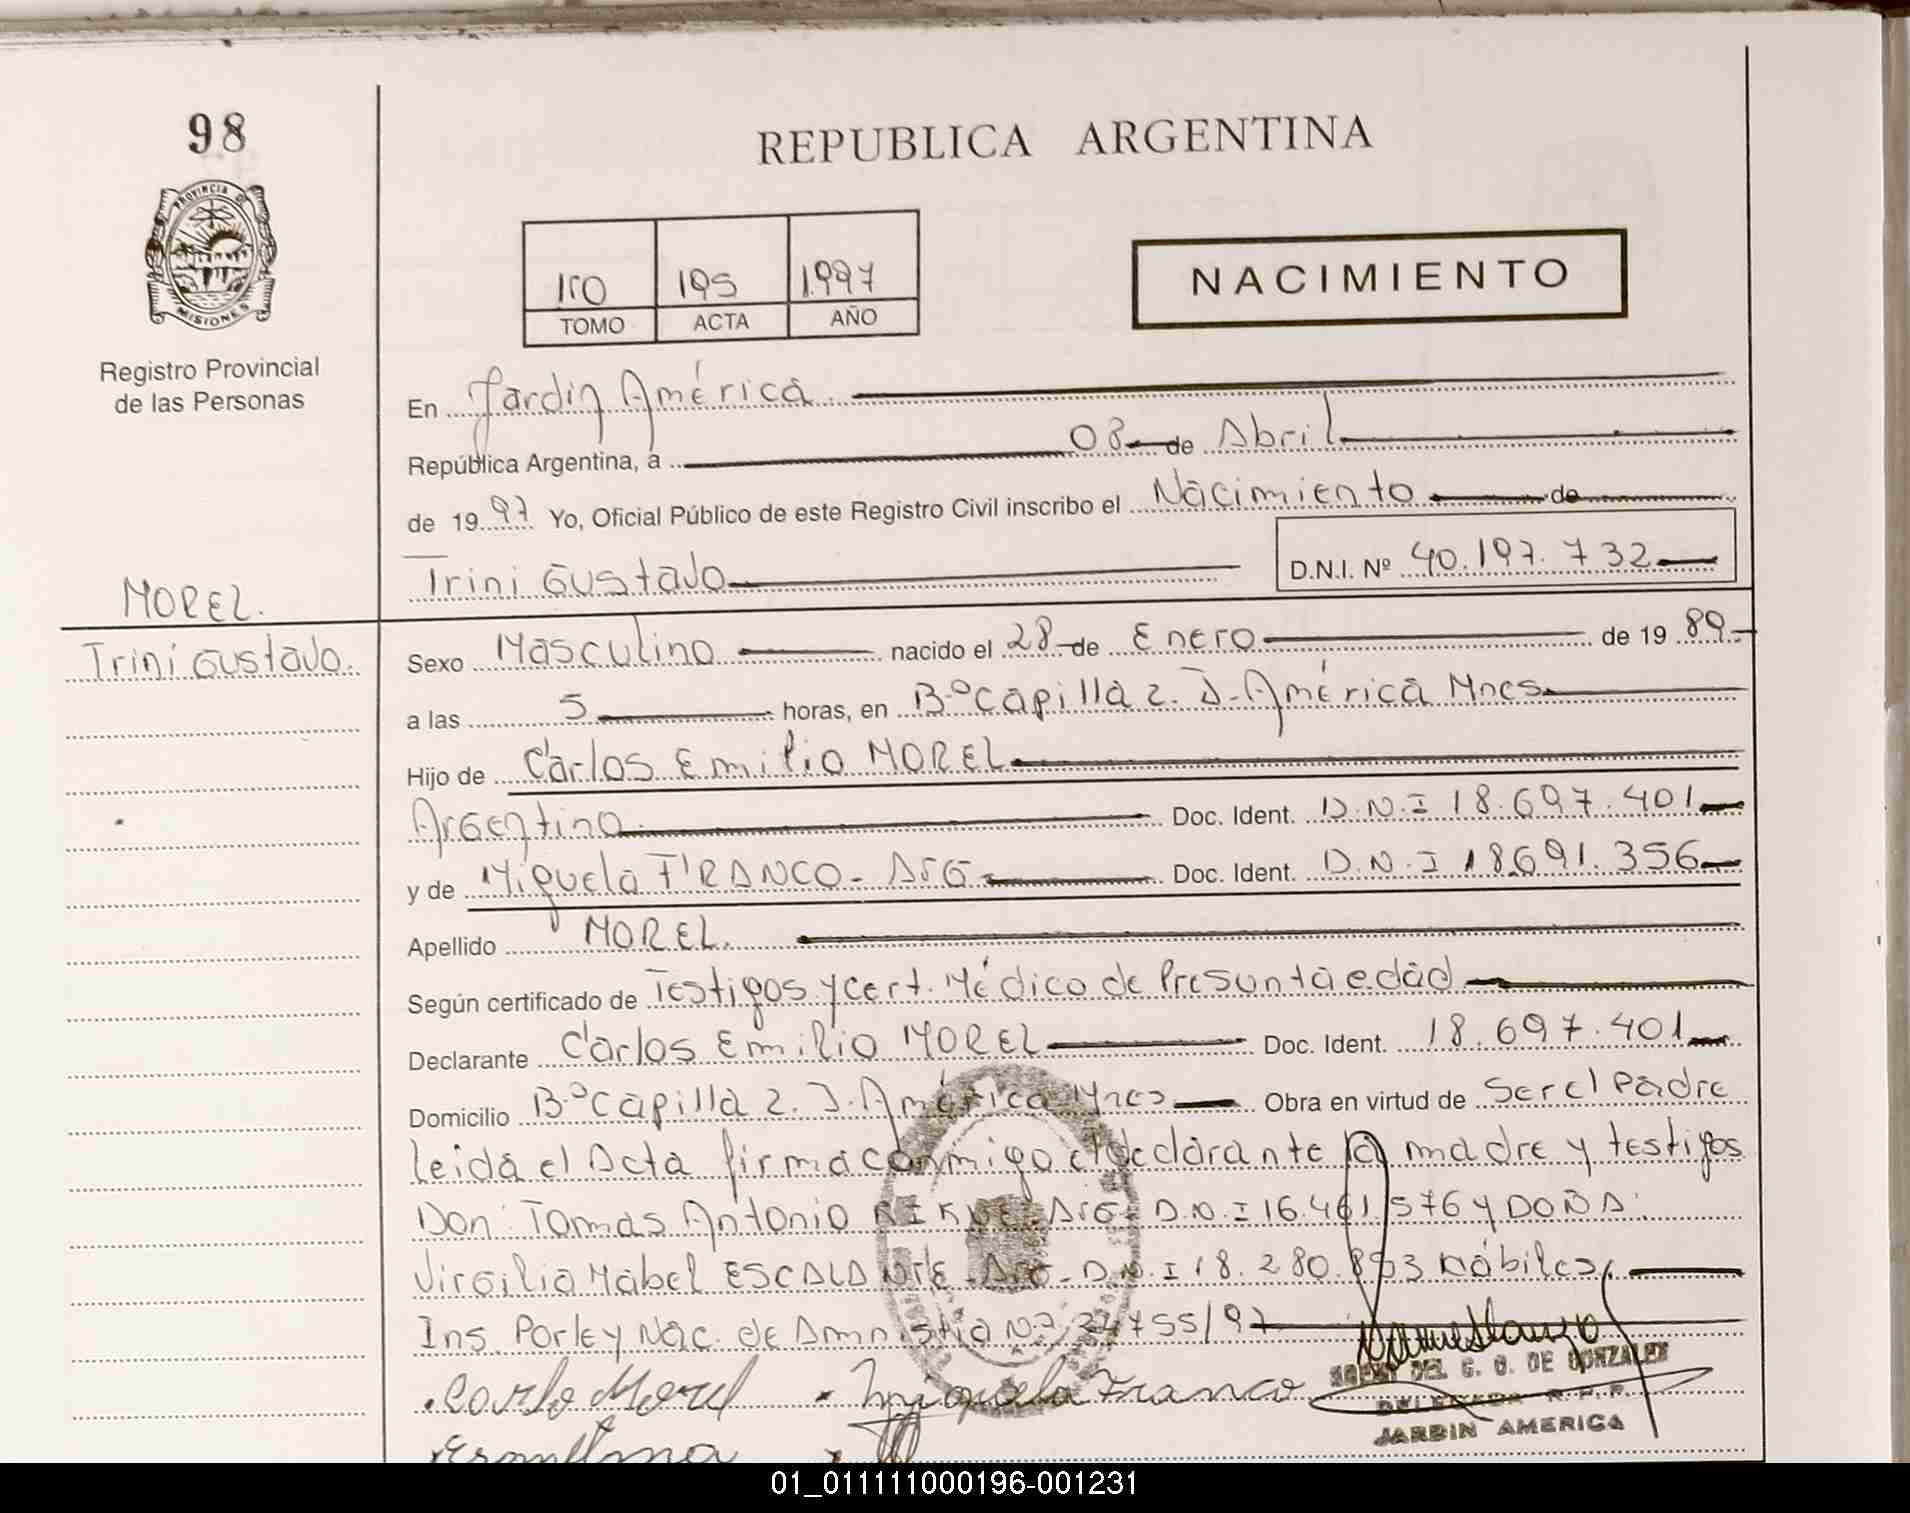 98
REPUBLICA ARGENTINA
PROVINCIA DE
MISIONES
Registro Provincial
de las Personas
1ro 195 1.997
TOMO ACTA AÑO
NACIMIENTO
En Jardin América
República Argentina, a 08 de Abril
de 1997 Yo, Oficial Público de este Registro Civil inscribo el Nacimiento de
Trini Gustavo D.N.I. Nº 40.197.732
MOREL.
Trini Gustavo.
Sexo Masculino nacido el 28 de Enero de 1989
a las 5 horas, en B.º Capilla 2. J. América Mnes
Hijo de Carlos Emilio MOREL
Argentino Doc. Ident. D.N.I 18.697.401
y de Miguela FRANCO - Arg - Doc. Ident. D.N.I 18.691.356
Apellido MOREL.
Según certificado de Testigos y cert. Médico de Presunta edad
Declarante Carlos Emilio MOREL Doc. Ident. 18.697.401
Domicilio B.º Capilla 2. J. América Mnes Obra en virtud de Ser el Padre
leida el Acta firma conmigo el declarante la madre y testigos
Don: Tomas Antonio Arg. D.N.I 16.461.576 y DOÑA:
Virgilia Mabel ESCALANTE - Arg - D.N.I 18.280.893 hábiles
Ins. Por ley Nac. de Amnistia Nº 24755/97
Carlo Morel Miguela Franco
DEL C. G. DE GONZALEZ
DELEGADA R.P.P.
JARDIN AMERICA
01_011111000196-001231